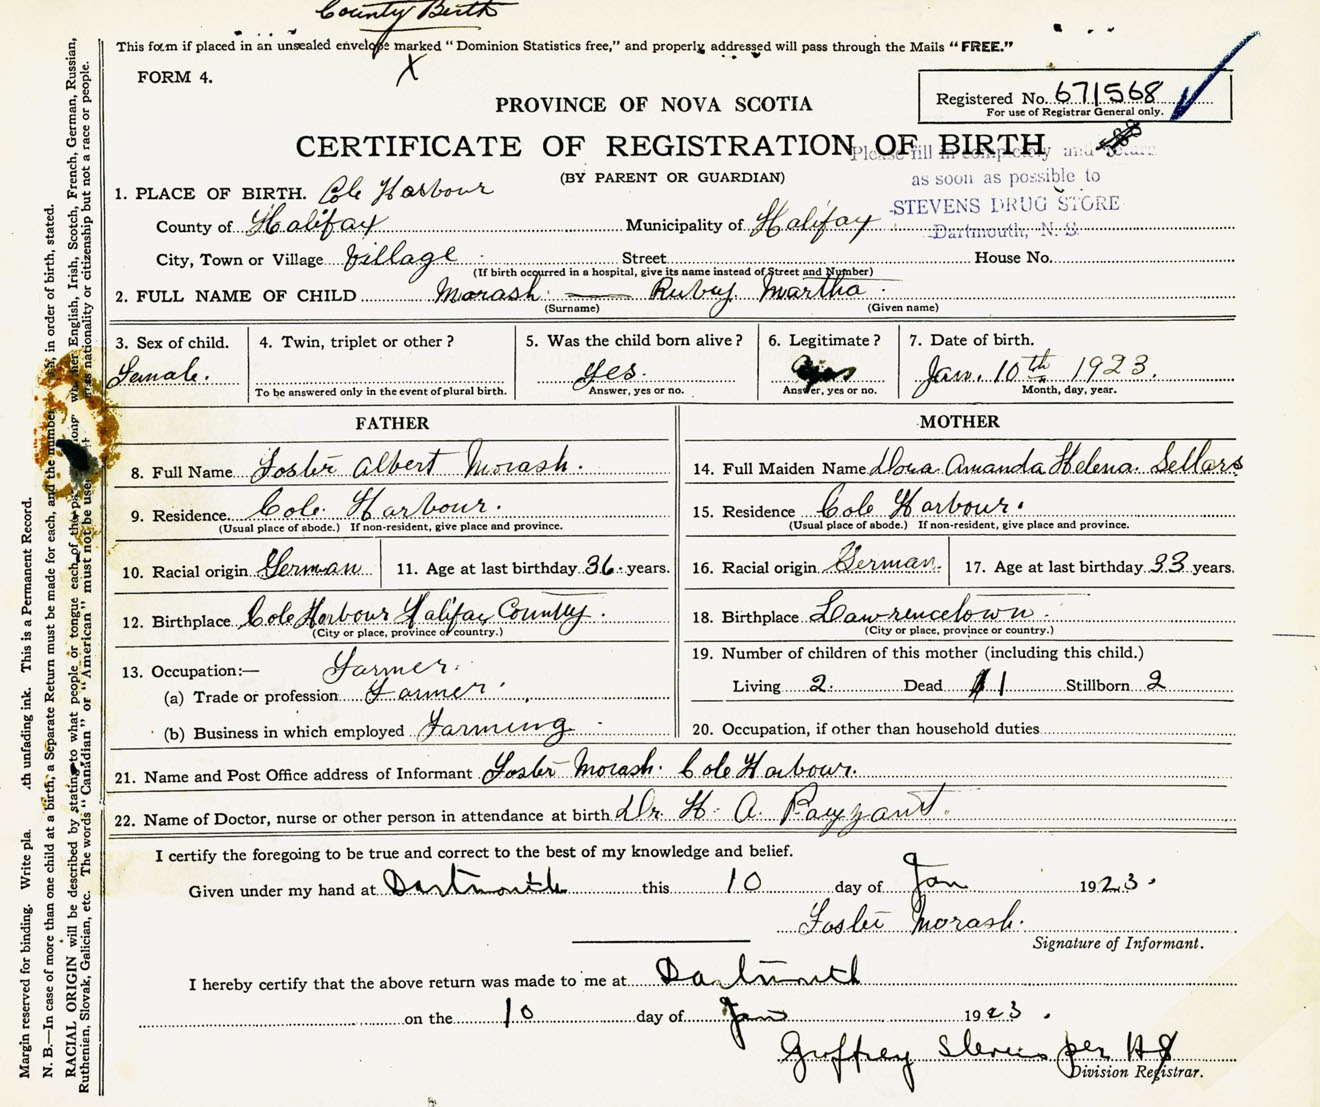 County Birth
This form if placed in an unsealed envelope marked "Dominion Statistics free," and properly addressed will pass through the Mails "FREE."
X
FORM 4.
Registered No. 671568
For use of Registrar General only.
PROVINCE OF NOVA SCOTIA
CERTIFICATE OF REGISTRATION OF BIRTH
(BY PARENT OR GUARDIAN)
Please fill in completely and return
as soon as possible to
STEVENS DRUG STORE
Dartmouth, N. S.
1. PLACE OF BIRTH. Cole Harbour
County of Halifax Municipality of Halifax
City, Town or Village Village Street House No.
(If birth occurred in a hospital, give its name instead of Street and Number)
2. FULL NAME OF CHILD Morash — Ruby Martha
(Surname) (Given name)
3. Sex of child. 4. Twin, triplet or other? 5. Was the child born alive? 6. Legitimate? 7. Date of birth.
Female. Yes. Jan. 10th 1923.
To be answered only in the event of plural birth. Answer, yes or no. Answer, yes or no. Month, day, year.
FATHER
8. Full Name Foster Albert Morash.
9. Residence Cole Harbour.
(Usual place of abode.) If non-resident, give place and province.
10. Racial origin German 11. Age at last birthday 36 years.
12. Birthplace Cole Harbour Halifax County.
(City or place, province or country.)
13. Occupation:— Farmer.
(a) Trade or profession Farmer.
(b) Business in which employed Farming
MOTHER
14. Full Maiden Name Dora Amanda Helena Sellars
15. Residence Cole Harbour.
(Usual place of abode.) If non-resident, give place and province.
16. Racial origin German. 17. Age at last birthday 33 years.
18. Birthplace Lawrencetown.
(City or place, province or country.)
19. Number of children of this mother (including this child.)
Living 2. Dead 1 Stillborn 2
20. Occupation, if other than household duties
21. Name and Post Office address of Informant Foster Morash. Cole Harbour.
22. Name of Doctor, nurse or other person in attendance at birth Dr. H. A. Payzant.
I certify the foregoing to be true and correct to the best of my knowledge and belief.
Given under my hand at Dartmouth this 10 day of Jan 1923.
Foster Morash.
Signature of Informant.
I hereby certify that the above return was made to me at Dartmouth
on the 10 day of Jan 1923.
Geoffrey Stevens per HS
Division Registrar.
Margin reserved for binding. Write unfading ink. This is a Permanent Record.
N. B.—In case of more than one child at a birth, a Separate Return must be made for each, and the number in order of birth, stated.
RACIAL ORIGIN will be described by stating to what people or tongue each of the belong English, Irish, Scotch, French, German, Russian,
Ruthenian, Slovak, Galician, etc. The words "Canadian" or "American" must not be used nationality or citizenship but not a race or people.